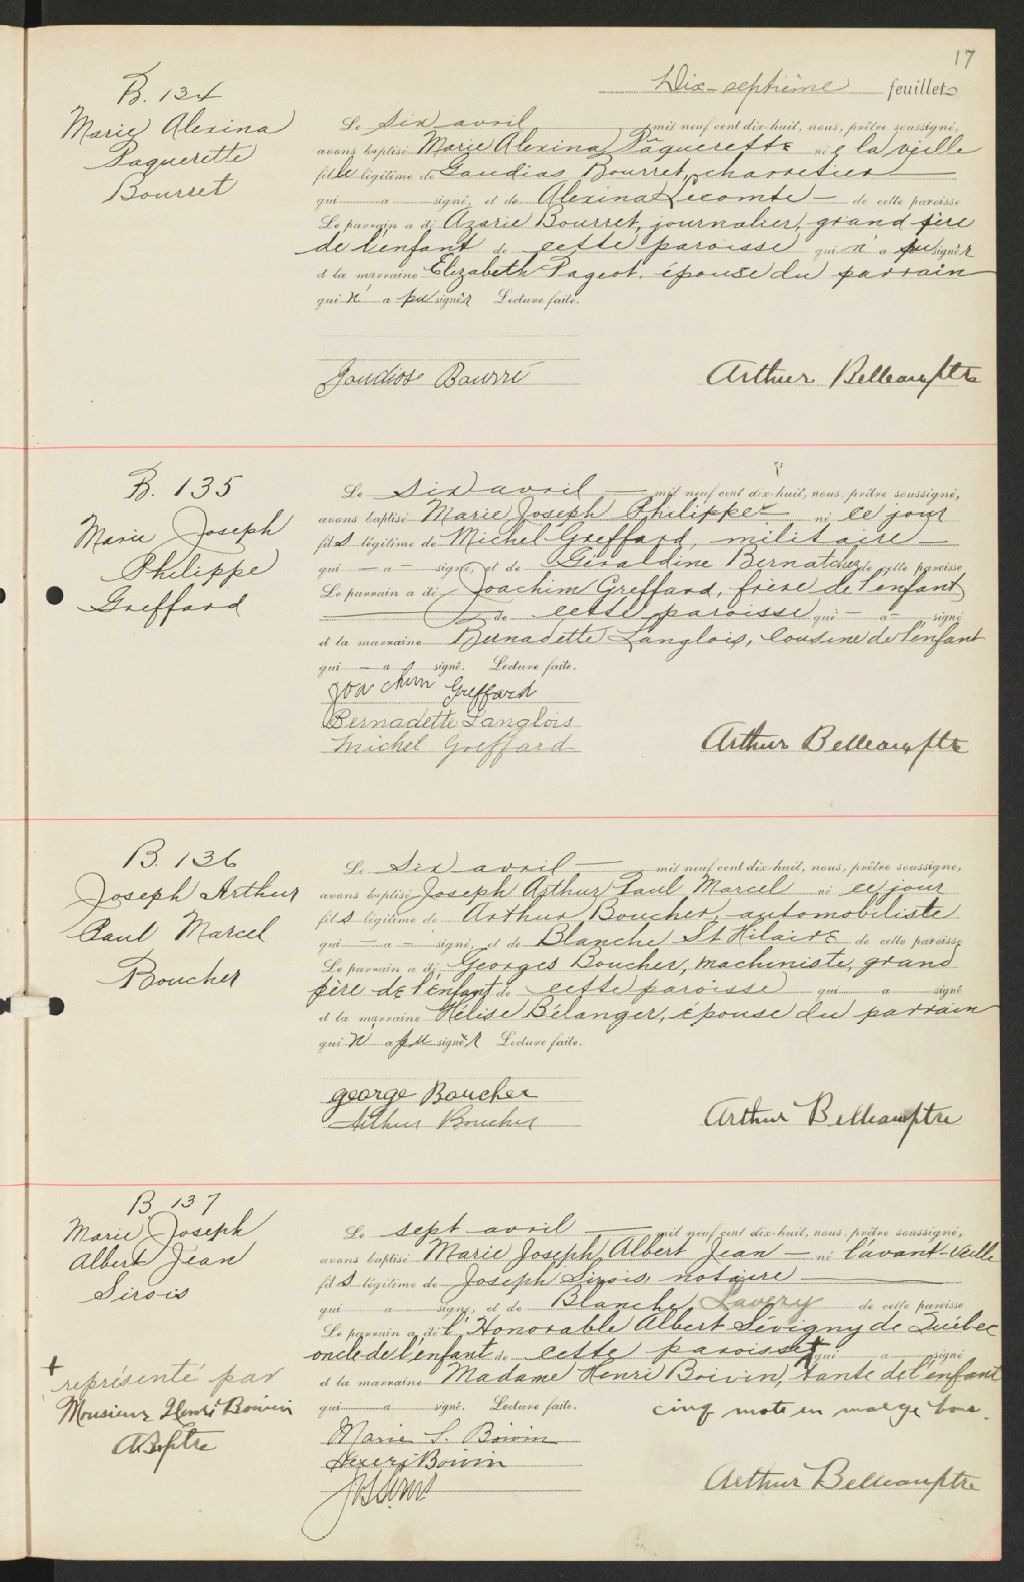 17
Dix-septième feuillet
B. 134
Marie Alexina
Paquerette
Bourret
Le six avril mil neuf cent dix-huit, nous, prêtre soussigné,
avons baptisé Marie Alexina Pâquerette née la veille
fille légitime de Gaudias Bourret, charretier
qui a signé, et de Alexina Lecomte - de cette paroisse
Le parrain a été Azarie Bourret, journalier, grand père
de l'enfant de cette paroisse qui n'a pu signer
et la marraine Elizabeth Pageot, épouse du parrain
qui n' a pu signer Lecture faite.
Gaudiose Bourré
Arthur Belleau ptre
B. 135
Marie Joseph
Philippe
Greffard
Le six avril - mil neuf cent dix-huit, nous, prêtre soussigné,
avons baptisé Marie Joseph Philippe - né ce jour
fils légitime de Michel Greffard, militaire -
qui - a - signé, et de Géraldine Bernatchez de cette paroisse
Le parrain a été Joachim Greffard, frère de l'enfant
de cette paroisse qui - a - signé
et la marraine Bernadette Langlois, cousine de l'enfant
qui - a signé. Lecture faite.
Joachim Greffard
Bernadette Langlois
Michel Greffard
Arthur Belleau, ptre
B. 136
Joseph Arthur
Paul Marcel
Boucher
Le six avril - mil neuf cent dix-huit, nous, prêtre soussigné,
avons baptisé Joseph Arthur Paul Marcel né ce jour
fils légitime de Arthur Boucher, automobiliste
qui - a - signé, et de Blanche St Hilaire de cette paroisse
Le parrain a été Georges Boucher, machiniste, grand
père de l'enfant de cette paroisse qui a signé
et la marraine Hélise Bélanger, épouse du parrain
qui n' a pu signer Lecture faite.
george Boucher
Arthur Boucher
Arthur Belleau ptre
B. 137
Marie Joseph
Albert Jean
Sirois
Le sept avril - mil neuf cent dix-huit, nous, prêtre soussigné,
avons baptisé Marie Joseph Albert Jean - né l'avant-veille
fils légitime de Joseph Sirois, notaire
qui a signé, et de Blanche Lavery de cette paroisse
Le parrain a été l'Honorable Albert Sévigny de Québec
oncle de l'enfant de cette paroisse + qui a signé
et la marraine Madame Henri Boivin, tante de l'enfant
qui a signé. Lecture faite. cinq mots en marge bons.
+
représenté par
Monsieur Henri Boivin
AB ptre
Marie S. Boivin
Henri Boivin
Jos Sirois
Arthur Belleau ptre